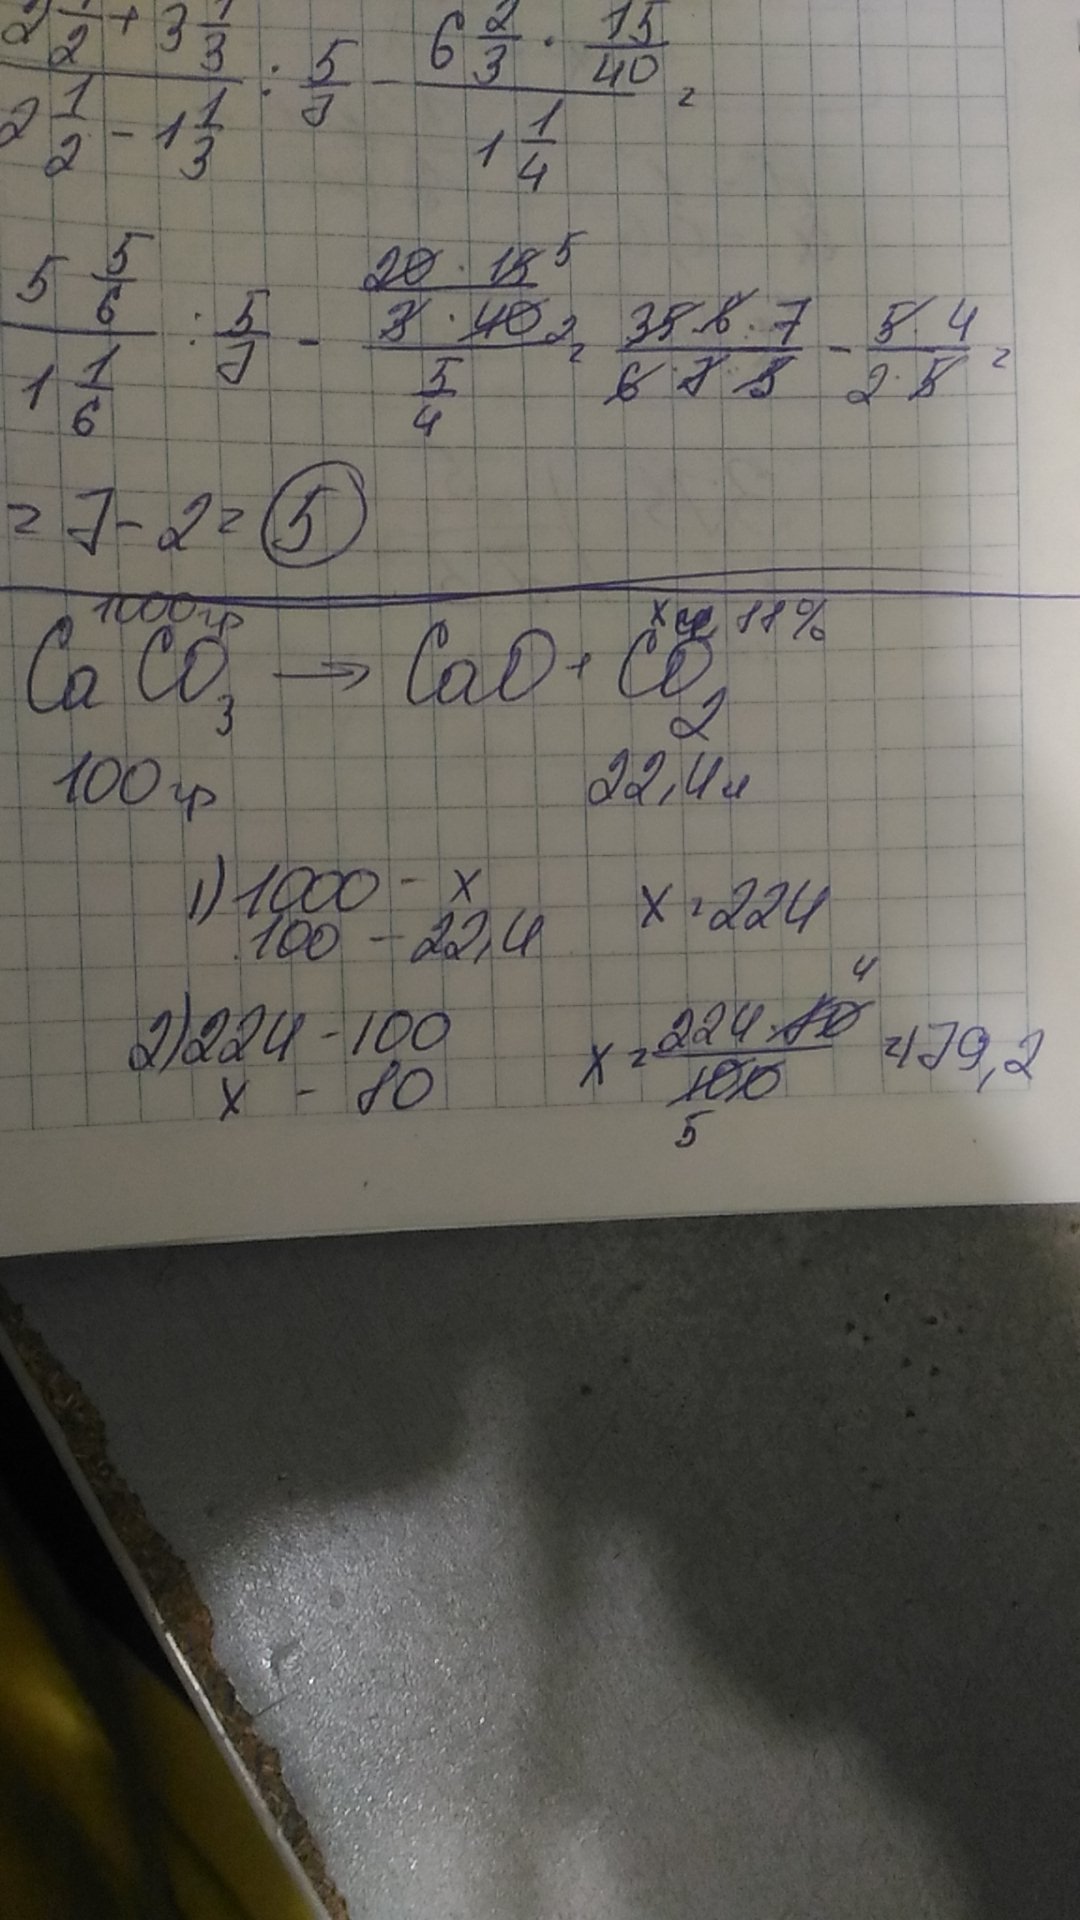 2 1/2 + 3 1/3 / 2 1/2 - 1 1/3 : 5/7 - 6 2/3 · 15/40 / 1 1/4 =
5 5/6 / 1 1/6 : 5/7 - 20 · 15 5 / 3 · 40 2 / 5/4 = 35 · 6 · 7 / 6 · 7 · 5 - 5 · 4 / 2 · 5 =
= 7 - 2 = 5
1000 гр 
CaCO3 → CaO + CO2
100 гр 22,4 л
1) 1000 - x x = 224
100 - 22,4
2) 224 - 100 x = 224 · 80 4 / 100 5 = 179,2
x - 80